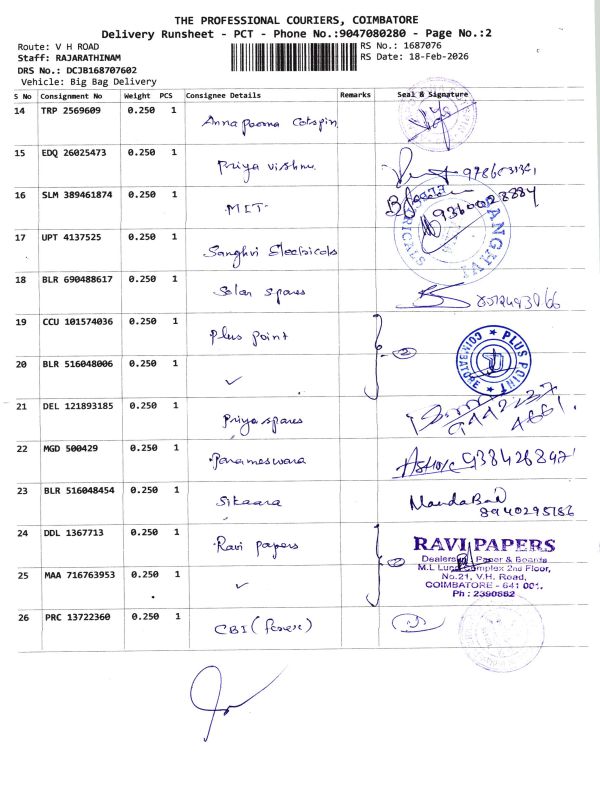 THE PROFESSIONAL COURIERS, COIMBATORE
Delivery Runsheet - PCT - Phone No.:9047080280 - Page No.:2
Route: V H ROAD
Staff: RAJARATHINAM
DRS No.: DCJB168707602
Vehicle: Big Bag Delivery
RS No.: 1687076
RS Date: 18-Feb-2026
S No Consignment No Weight PCS Consignee Details Remarks Seal & Signature
14 TRP 2569609 0.250 1 Annapoorna Cotspin
15 EDQ 26025473 0.250 1 Priya vishnu
16 SLM 389461874 0.250 1 MIT 9360028884
17 UPT 4137525 0.250 1 Sanghvi Electricals SANGHVI ELECTRICALS
18 BLR 690488617 0.250 1 Solar spares
19 CCU 101574036 0.250 1 Plus point 2 PLUS POINT COIMBATORE
20 BLR 516048006 0.250 1 ✓
21 DEL 121893185 0.250 1 Priya spares
22 MGD 500429 0.250 1 Parameswara
23 BLR 516048454 0.250 1 Sikaara 8940295186
24 DDL 1367713 0.250 1 Ravi papers
25 MAA 716763953 0.250 1 ✓ 2
RAVI PAPERS
Dealers in: Paper & Boards
M.L Lund Complex 2nd Floor,
No.21, V.H. Road,
COIMBATORE - 641 001.
Ph : 2390882
26 PRC 13722360 0.250 1 CBI